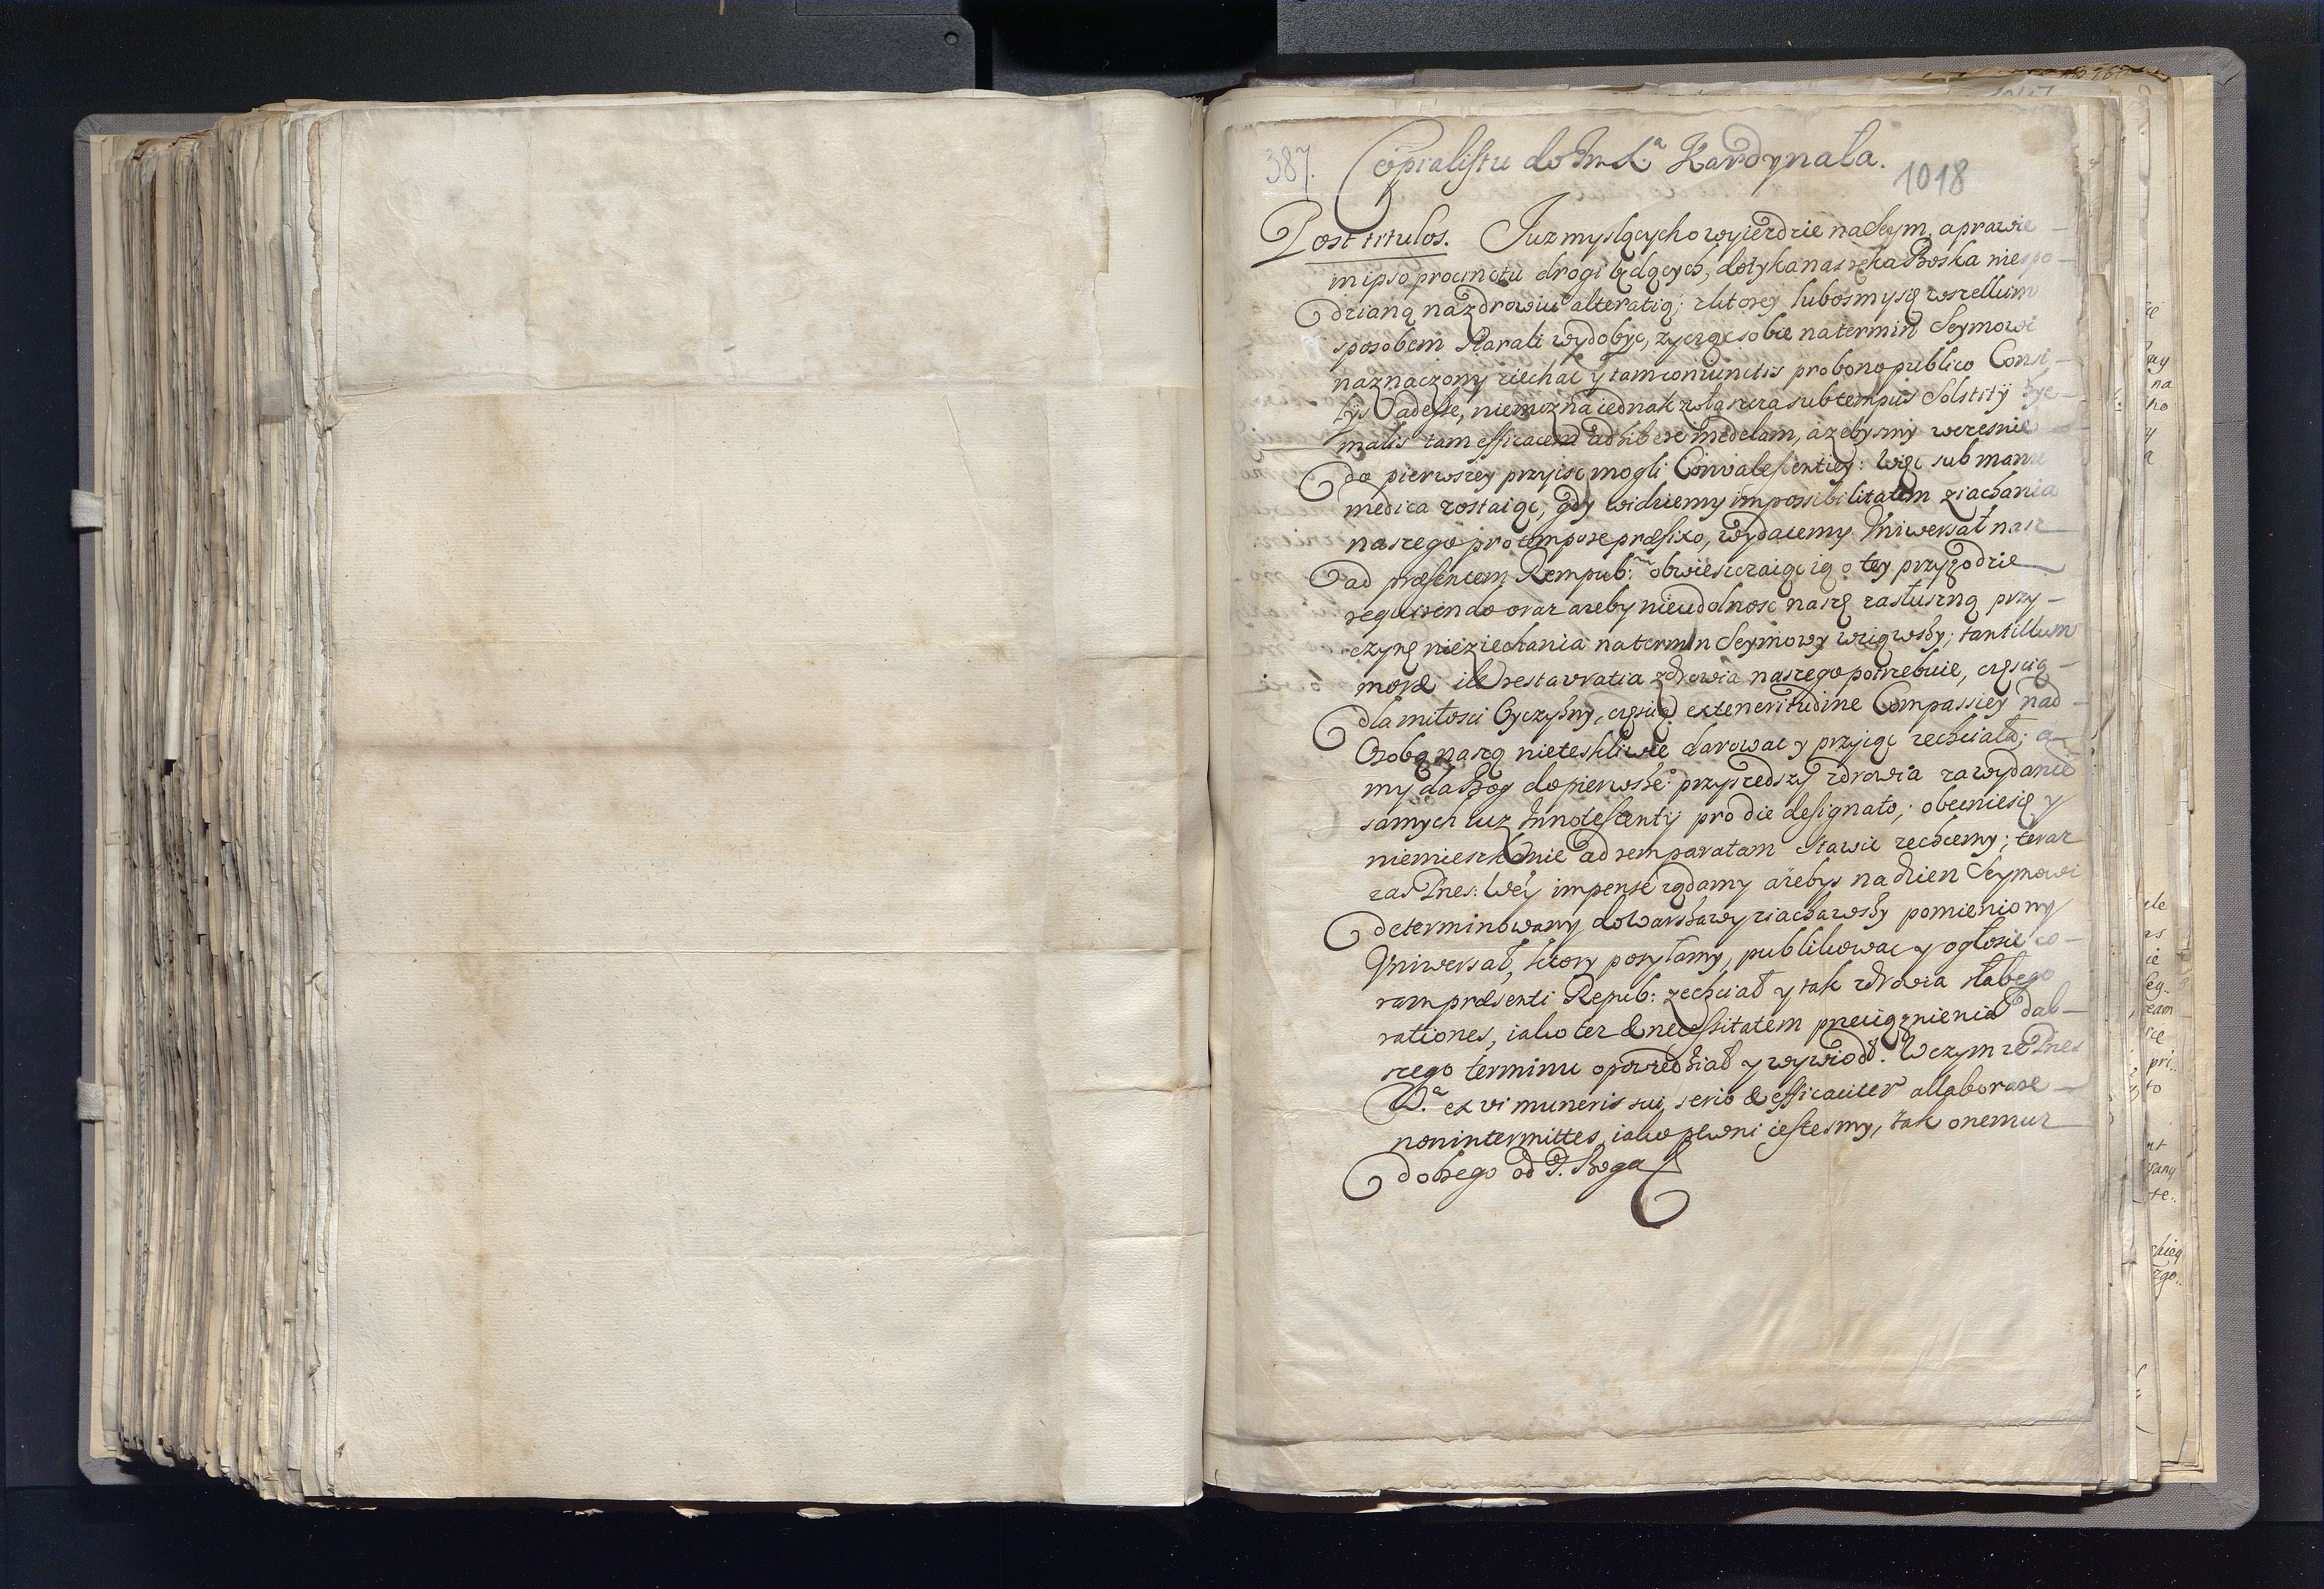 387.
Copia listu do Jm X.ª Kardynała.
1018
Post titulos. Juz myslących o wyiezdzie na Seym, a prawie
in ipso procinctu drogi będących, dotyka nas ręka Boska niespo-
dzianą na zdrowiu alteratią; z ktorey lubosmy się wszellum
sposobem starali wydobyc, zycząc sobie na termin Seymowi
naznaczony ziechac y tam coniunctis pro bono publico Consi-
lÿs adesse, niemozna iednak zwłaszcza sub tempus Solstitÿ hye-
malis tam efficacem adhibere medelam, azebysmy wczesnie
do pierwszey przyisc mogli Convalescentiey: Więc sub manu
medica zostaiąc, gdy widziemy impossibilitatem ziachania
naszego pro tempore præfixo, wydaiemy Vniwersał nasz
ad præsentem Rempub: obwieszczaiąc ią o tey przygodzie
requirendo oraz azeby nieudolnosc naszę za słuszną przy-
czynę nieziechania na termin Seymowy wziąwszy; tantillum
moræ ile restauratia zdrowia naszego potrzebuie, częscią
dla miłosci Oyczyzny, częscią ex teneritudine Compassiey nad
Osobą naszą nieteskliwie darowac y przyiąc zechciała; a
my da Bog do pierwsze: przyszedszy zdrowia za wydanie
samych iuz Innotescentÿ pro die designato; obecnie się y
niemieszkanie ad rem paratam stawic zechcemy; teraz
zas Vnes: Wėÿ impense ządamy azebys na dzien Seymowi
determinowany do Warszawy ziachawszy pomieniony
Vniwersał, ktory posyłamy, publikowac y ogłosic co-
ram præsenti Repub: zechciał y tak zdrowia słabego
rationes, iako tez & necessitatem przeciągnienia dal-
szego terminu opowiedział y wywiodł. W czym ze Vnes
W.ª ex vi muneris sui, serio & efficaciter allaborare
non intermittes, iako pewni iestesmy, tak onemuz
dobrego od P. Boga